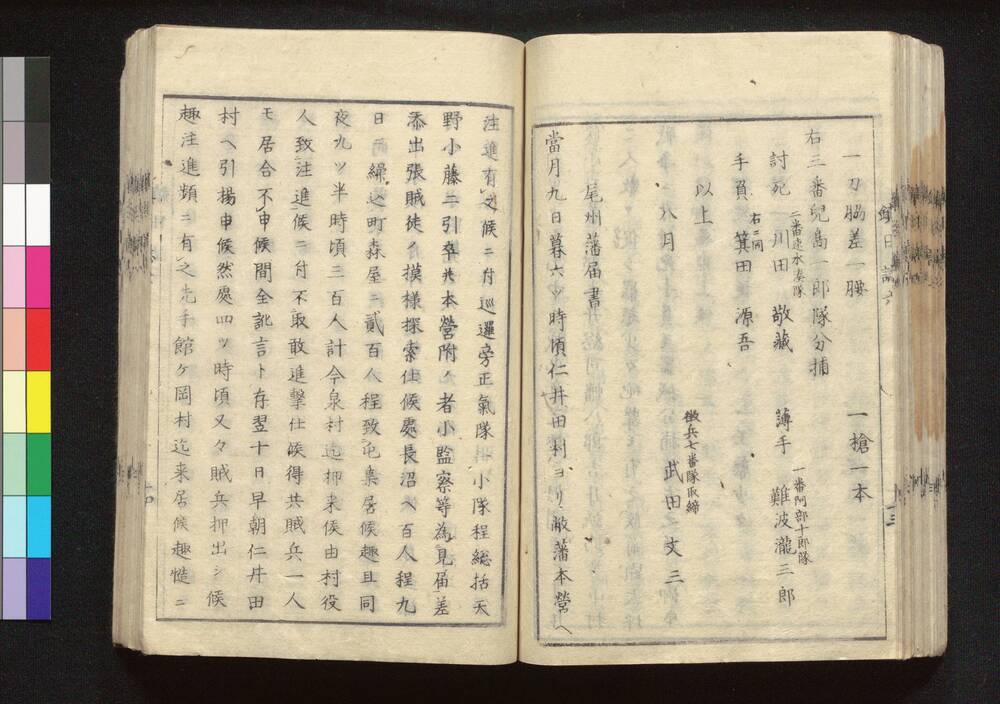 一刀脇差一腰　一槍一本
右三番兒島一郎隊分捕
二番速水湊隊
討死　川田　敬藏
一番阿部十郎隊
薄手　難波瀧三郎
右ニ同
手負　箕田　源吾
以上
八月
徴兵七番隊取締
武田　文三
尾州藩届書
當月九日暮六ッ時頃仁井田村ヨリ敝藩本營ヘ
注進有之候ニ付巡邏旁正氣隊
小隊程総括天
野小藤二引卒其本營附ノ者小監察等為見届差
添出張賊徒ノ摸様探索仕候處長沼ヘ百人程九
日
繰込町森屋ニ貳百人程致屯集居候趣且同
夜九ッ半時頃三百人計今泉村迄押来候由村役
人致注進候ニ付不取敢進撃仕候得共賊兵一人
モ居合不申候間全訛言ト存翌十日早朝仁井田
村ヘ引揚申候然處四ッ時頃又々賊兵押出シ候
趣注進頻ニ有之先手館ケ岡村迄来居候趣慥ニ